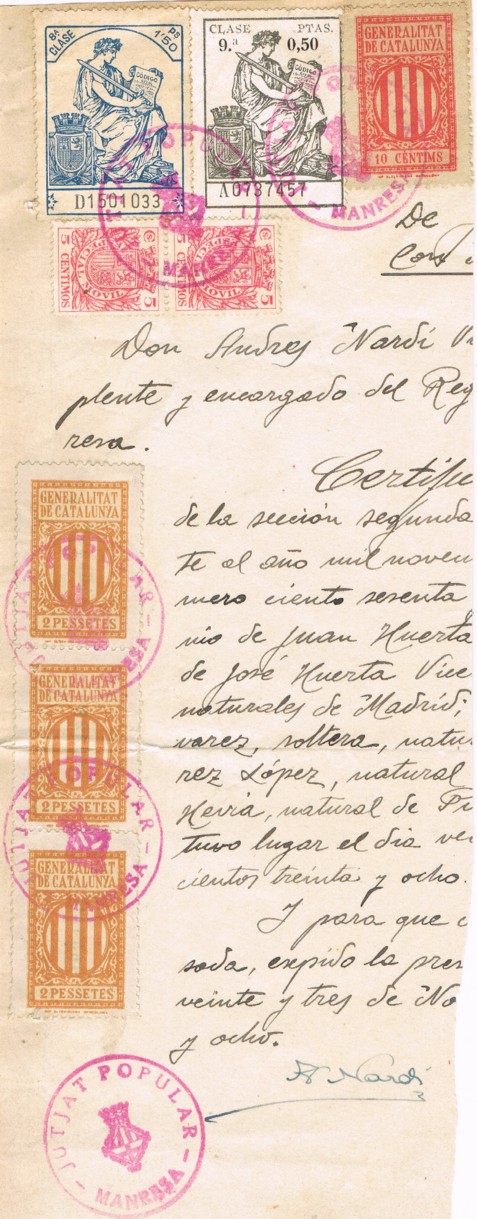 8ª CLASE 1'50 Ps
CLASE PTAS.
9.ª 0,50
GENERALITAT
DE CATALUNYA
CÓDIGO
CÓDIGO
10 CÈNTIMS
D1501033
A0737457
JUTJAT POPULAR - MANRESA -
JUTJAT POPULAR - MANRESA -
5 CENTIMOS ESPECIAL MOVIL 5
5 CENTIMOS ESPECIAL MOVIL 5
De
Don Andres Nardi
plente y encargado del Reg
resa.
Certific
de la sección segunda
te al año mil noven
mero ciento sesenta
nio de Juan Huerta
de José Huerta Vice
naturales de Madrid;
varez, soltera, natu
rez López, natural
Hevia, natural de
tuvo lugar el dia ve
cientos treinta y ocho.
Y para que
sada, expido la pres
veinte y tres de No
y ocho.
A Nardi
GENERALITAT
DE CATALUNYA
2 PESSETES
GENERALITAT
DE CATALUNYA
2 PESSETES
GENERALITAT
DE CATALUNYA
2 PESSETES
JUTJAT POPULAR - MANRESA -
JUTJAT POPULAR - MANRESA -
JUTJAT POPULAR - MANRESA -